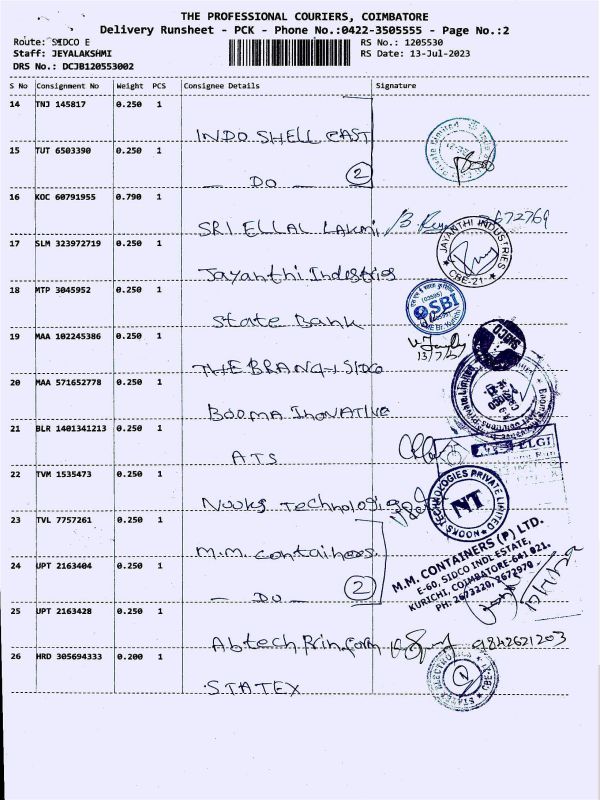 THE PROFESSIONAL COURIERS, COIMBATORE
Delivery Runsheet - PCK - Phone No.:0422-3505555 - Page No.:2
Route: SIDCO E RS No.: 1205530
Staff: JEYALAKSHMI RS Date: 13-Jul-2023
DRS No.: DCJB120553002
S No Consignment No Weight PCS Consignee Details Signature
14 TNJ 145817 0.250 1
INDO SHELL CAST
15 TUT 6503390 0.250 1
- DO - 2
16 KOC 60791955 0.790 1
SRI ELLAL LAKMI
17 SLM 323972719 0.250 1
JAYANTHI INDUSTRIES
CBE-21
Jayanthi Industries
18 MTP 3045952 0.250 1
SBI
State Bank
19 MAA 102245386 0.250 1
13/7/23
THE BRANCH SIDCO
20 MAA 571652778 0.250 1
BOOMA INOVATIVE
21 BLR 1401341213 0.250 1
ELGI
ATS
22 TVM 1535473 0.250 1
NOOKS TECHNOLOGIES PRIVATE LIMITED
NT
Nooks Technologies
23 TVL 7757261 0.250 1
M.M. containers
M.M. CONTAINERS (P) LTD.
E-60, SIDCO INDL ESTATE,
KURICHI, COIMBATORE-641 021.
PH: 2673220, 2672970
24 UPT 2163404 0.250 1
- DO - 2
25 UPT 2163428 0.250 1
Abtech Prinform 9842621203
26 HRD 305694333 0.200 1
STATEX